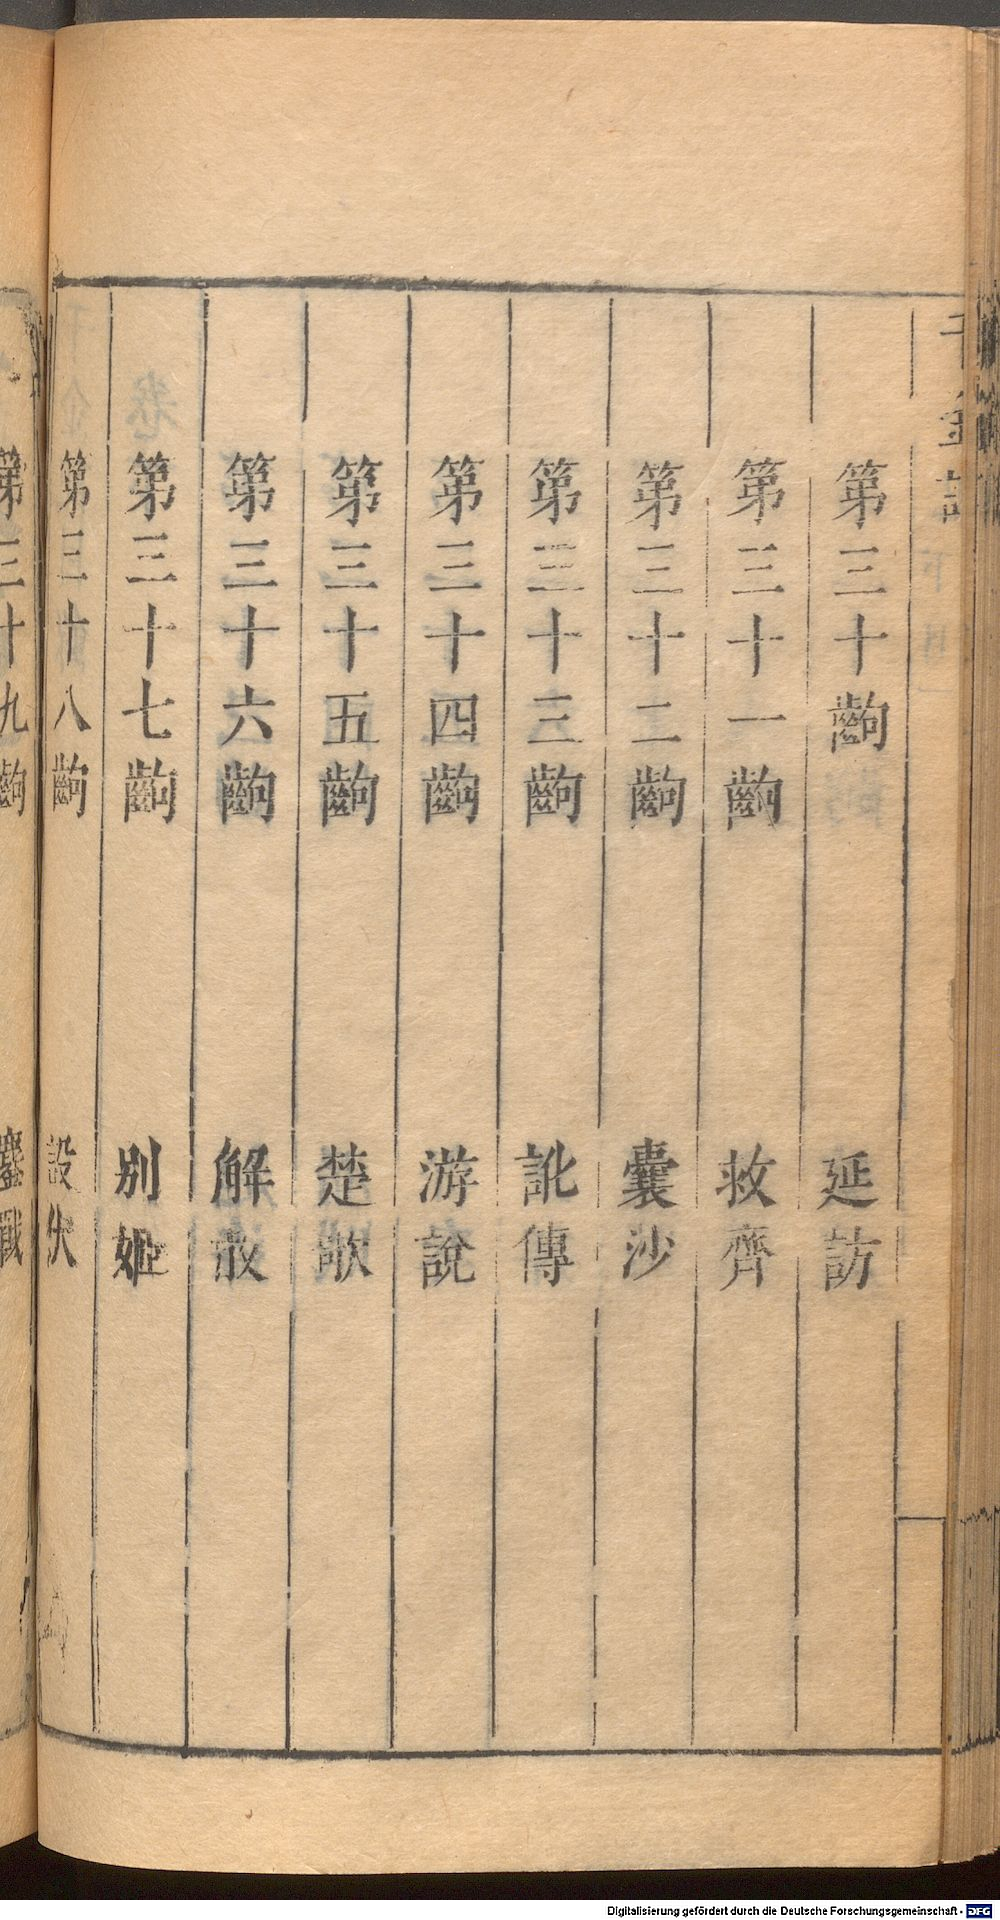 第三十齣　延訪
第三十一齣　救齊
第三十二齣　囊沙
第三十三齣　訛傳
第三十四齣　游說
第三十五齣　楚歌
第三十六齣　解散
第三十七齣　別姬
第三十八齣　設伏
第三十九齣
Digitalisierung gefördert durch die Deutsche Forschungsgemeinschaft - DFG